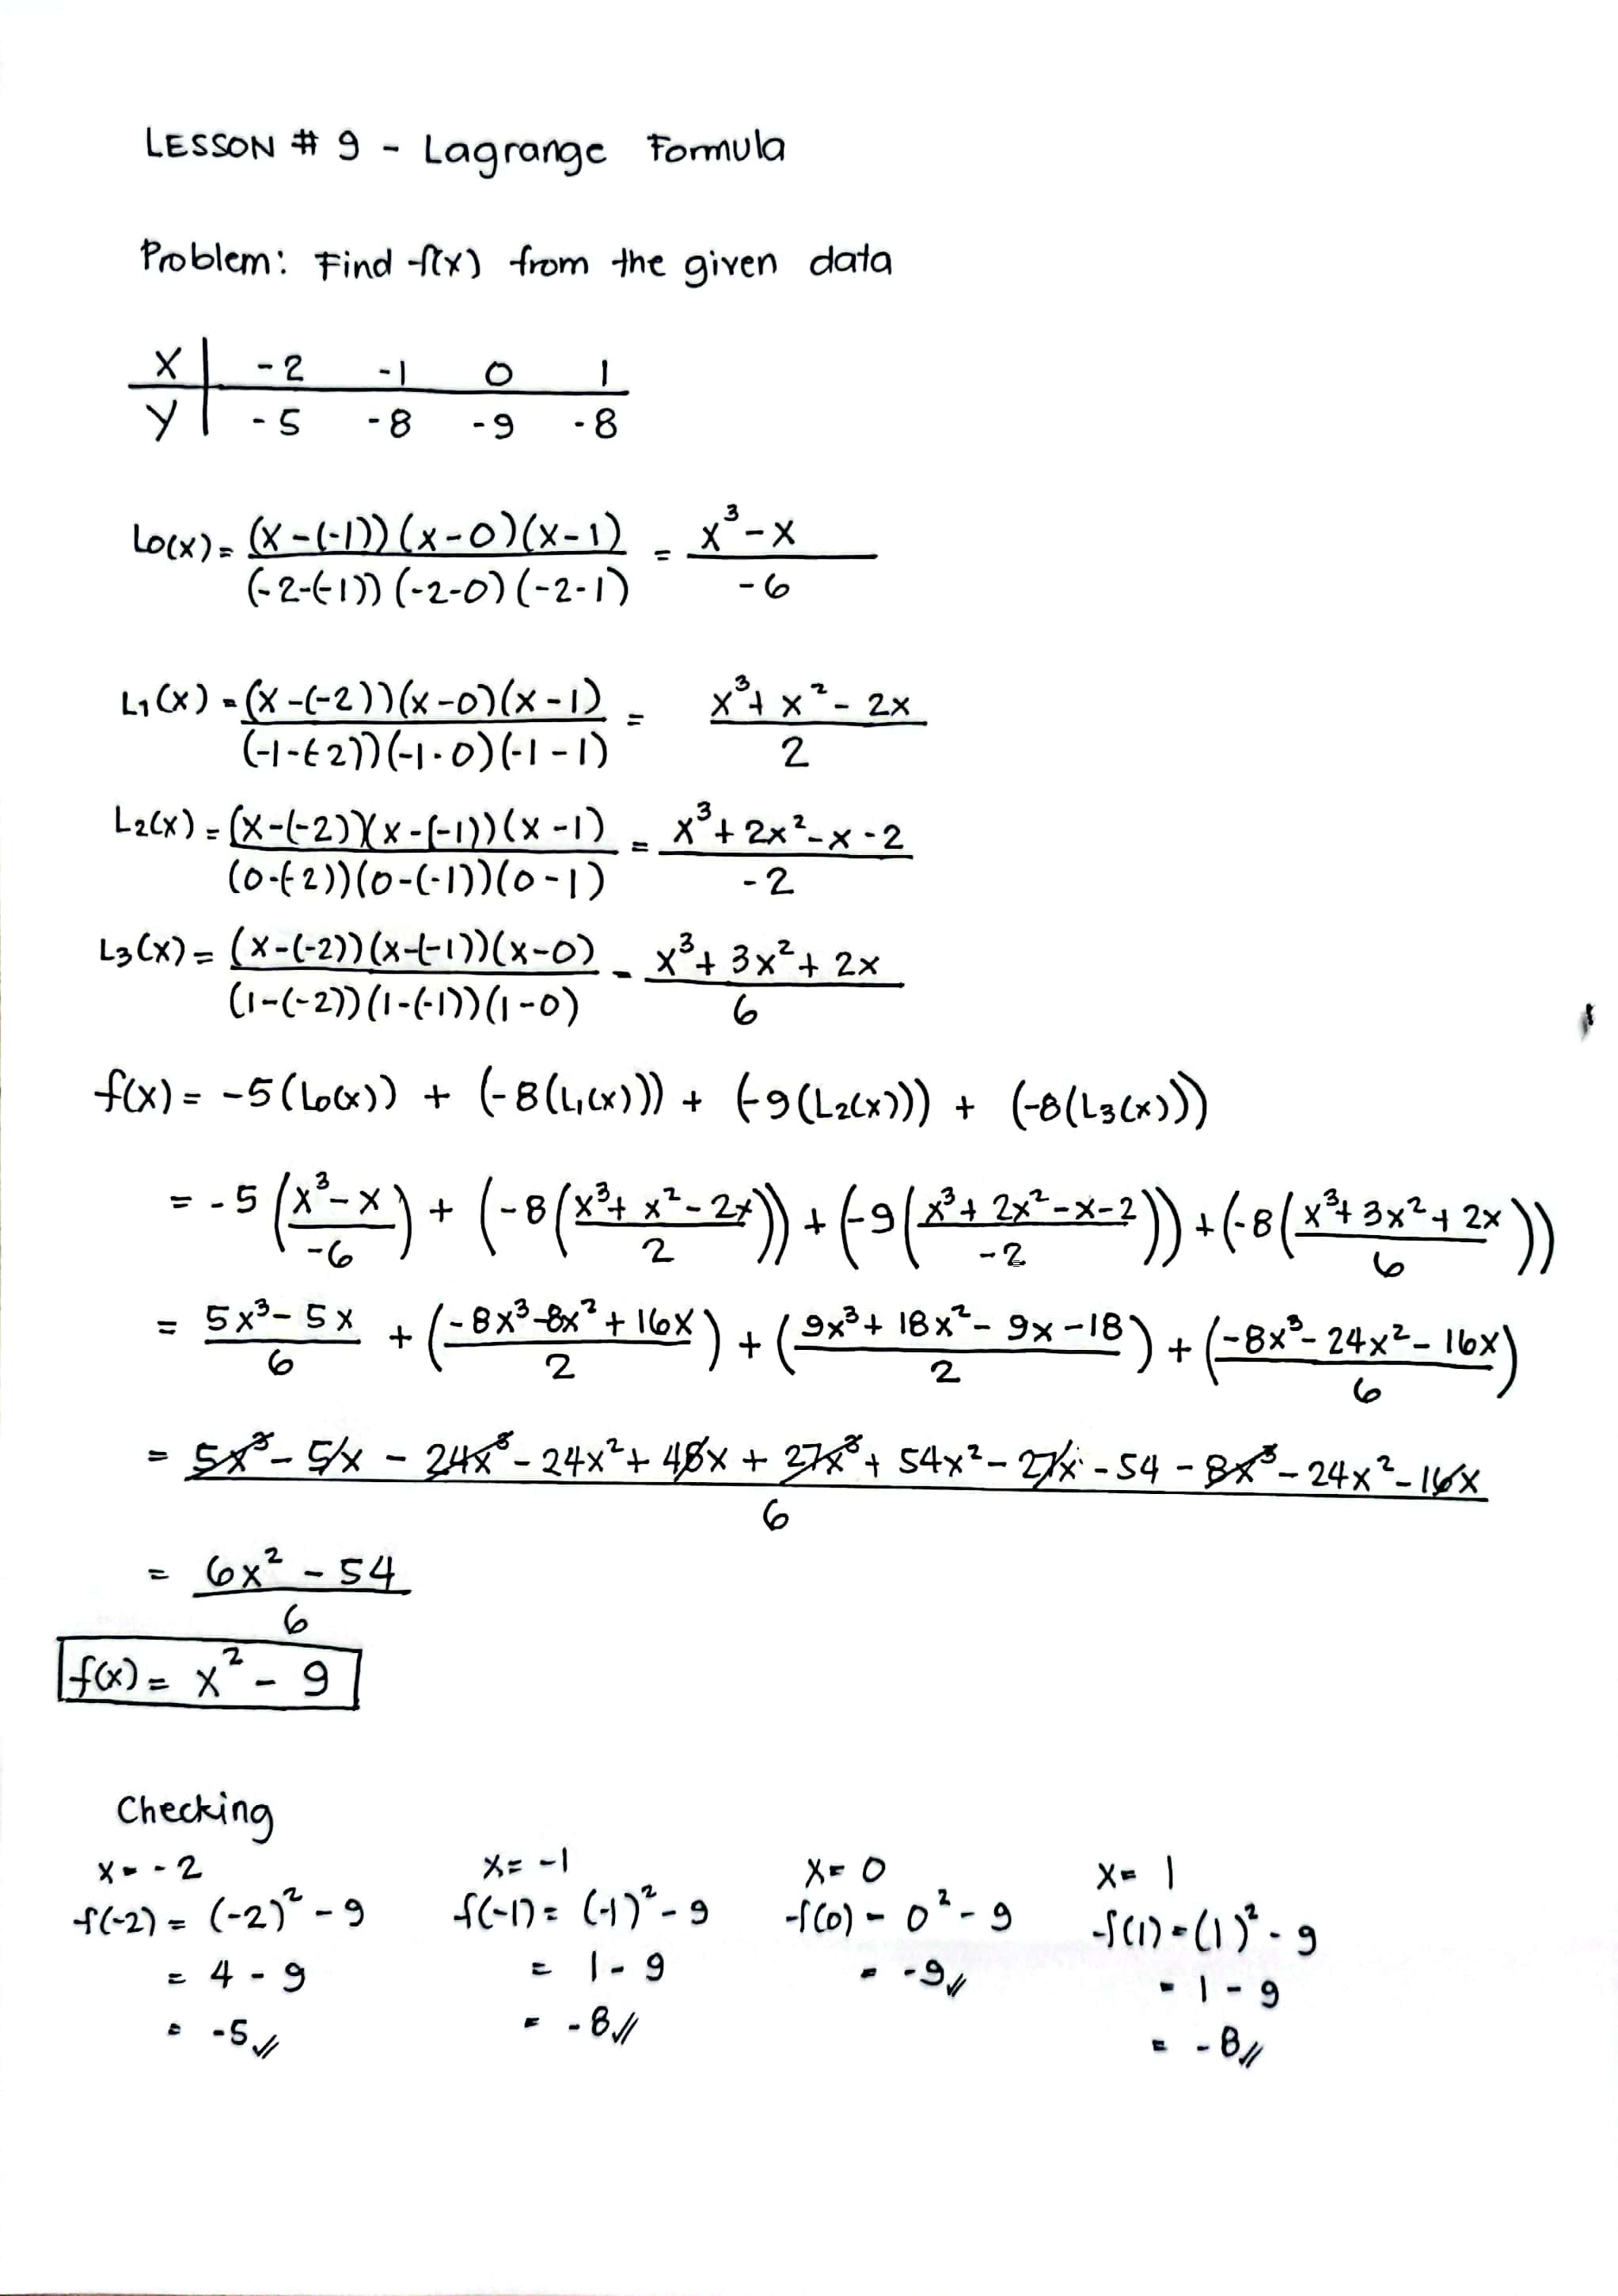 LESSON # 9 - Lagrange Formula
Problem: Find f(x) from the given data
X | -2 -1 0 1
Y | -5 -8 -9 -8
L0(x) = (x-(-1))(x-0)(x-1) / (-2-(-1))(-2-0)(-2-1) = x³-x / -6
L1(x) = (x-(-2))(x-0)(x-1) / (-1-(-2))(-1-0)(-1-1) = x³+x²-2x / 2
L2(x) = (x-(-2))(x-(-1))(x-1) / (0-(-2))(0-(-1))(0-1) = x³+2x²-x-2 / -2
L3(x) = (x-(-2))(x-(-1))(x-0) / (1-(-2))(1-(-1))(1-0) = x³+3x²+2x / 6
f(x) = -5(L0(x)) + (-8(L1(x))) + (-9(L2(x))) + (-8(L3(x)))
= -5(x³-x / -6) + (-8(x³+x²-2x / 2)) + (-9(x³+2x²-x-2 / -2)) + (-8(x³+3x²+2x / 6))
= 5x³-5x / 6 + (-8x³-8x²+16x / 2) + (9x³+18x²-9x-18 / 2) + (-8x³-24x²-16x / 6)
= 5x³-5x-24x³-24x²+48x+27x³+54x²-27x-54-8x³-24x²-16x / 6
= 6x²-54 / 6
f(x) = x²-9
Checking
x = -2 x = -1 x = 0 x = 1
f(-2) = (-2)²-9 f(-1) = (-1)²-9 f(0) = 0²-9 f(1) = (1)²-9
= 4-9 = 1-9 = -9// = 1-9
= -5// = -8// = -8//